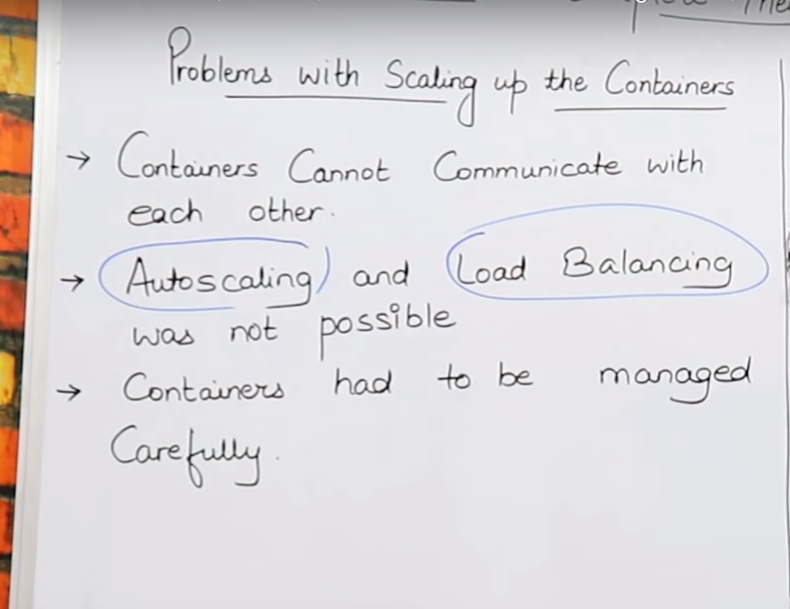 Problems with Scaling up the Containers
→ Containers Cannot Communicate with
each other.
→ Autoscaling and Load Balancing
was not possible
→ Containers had to be managed
Carefully.